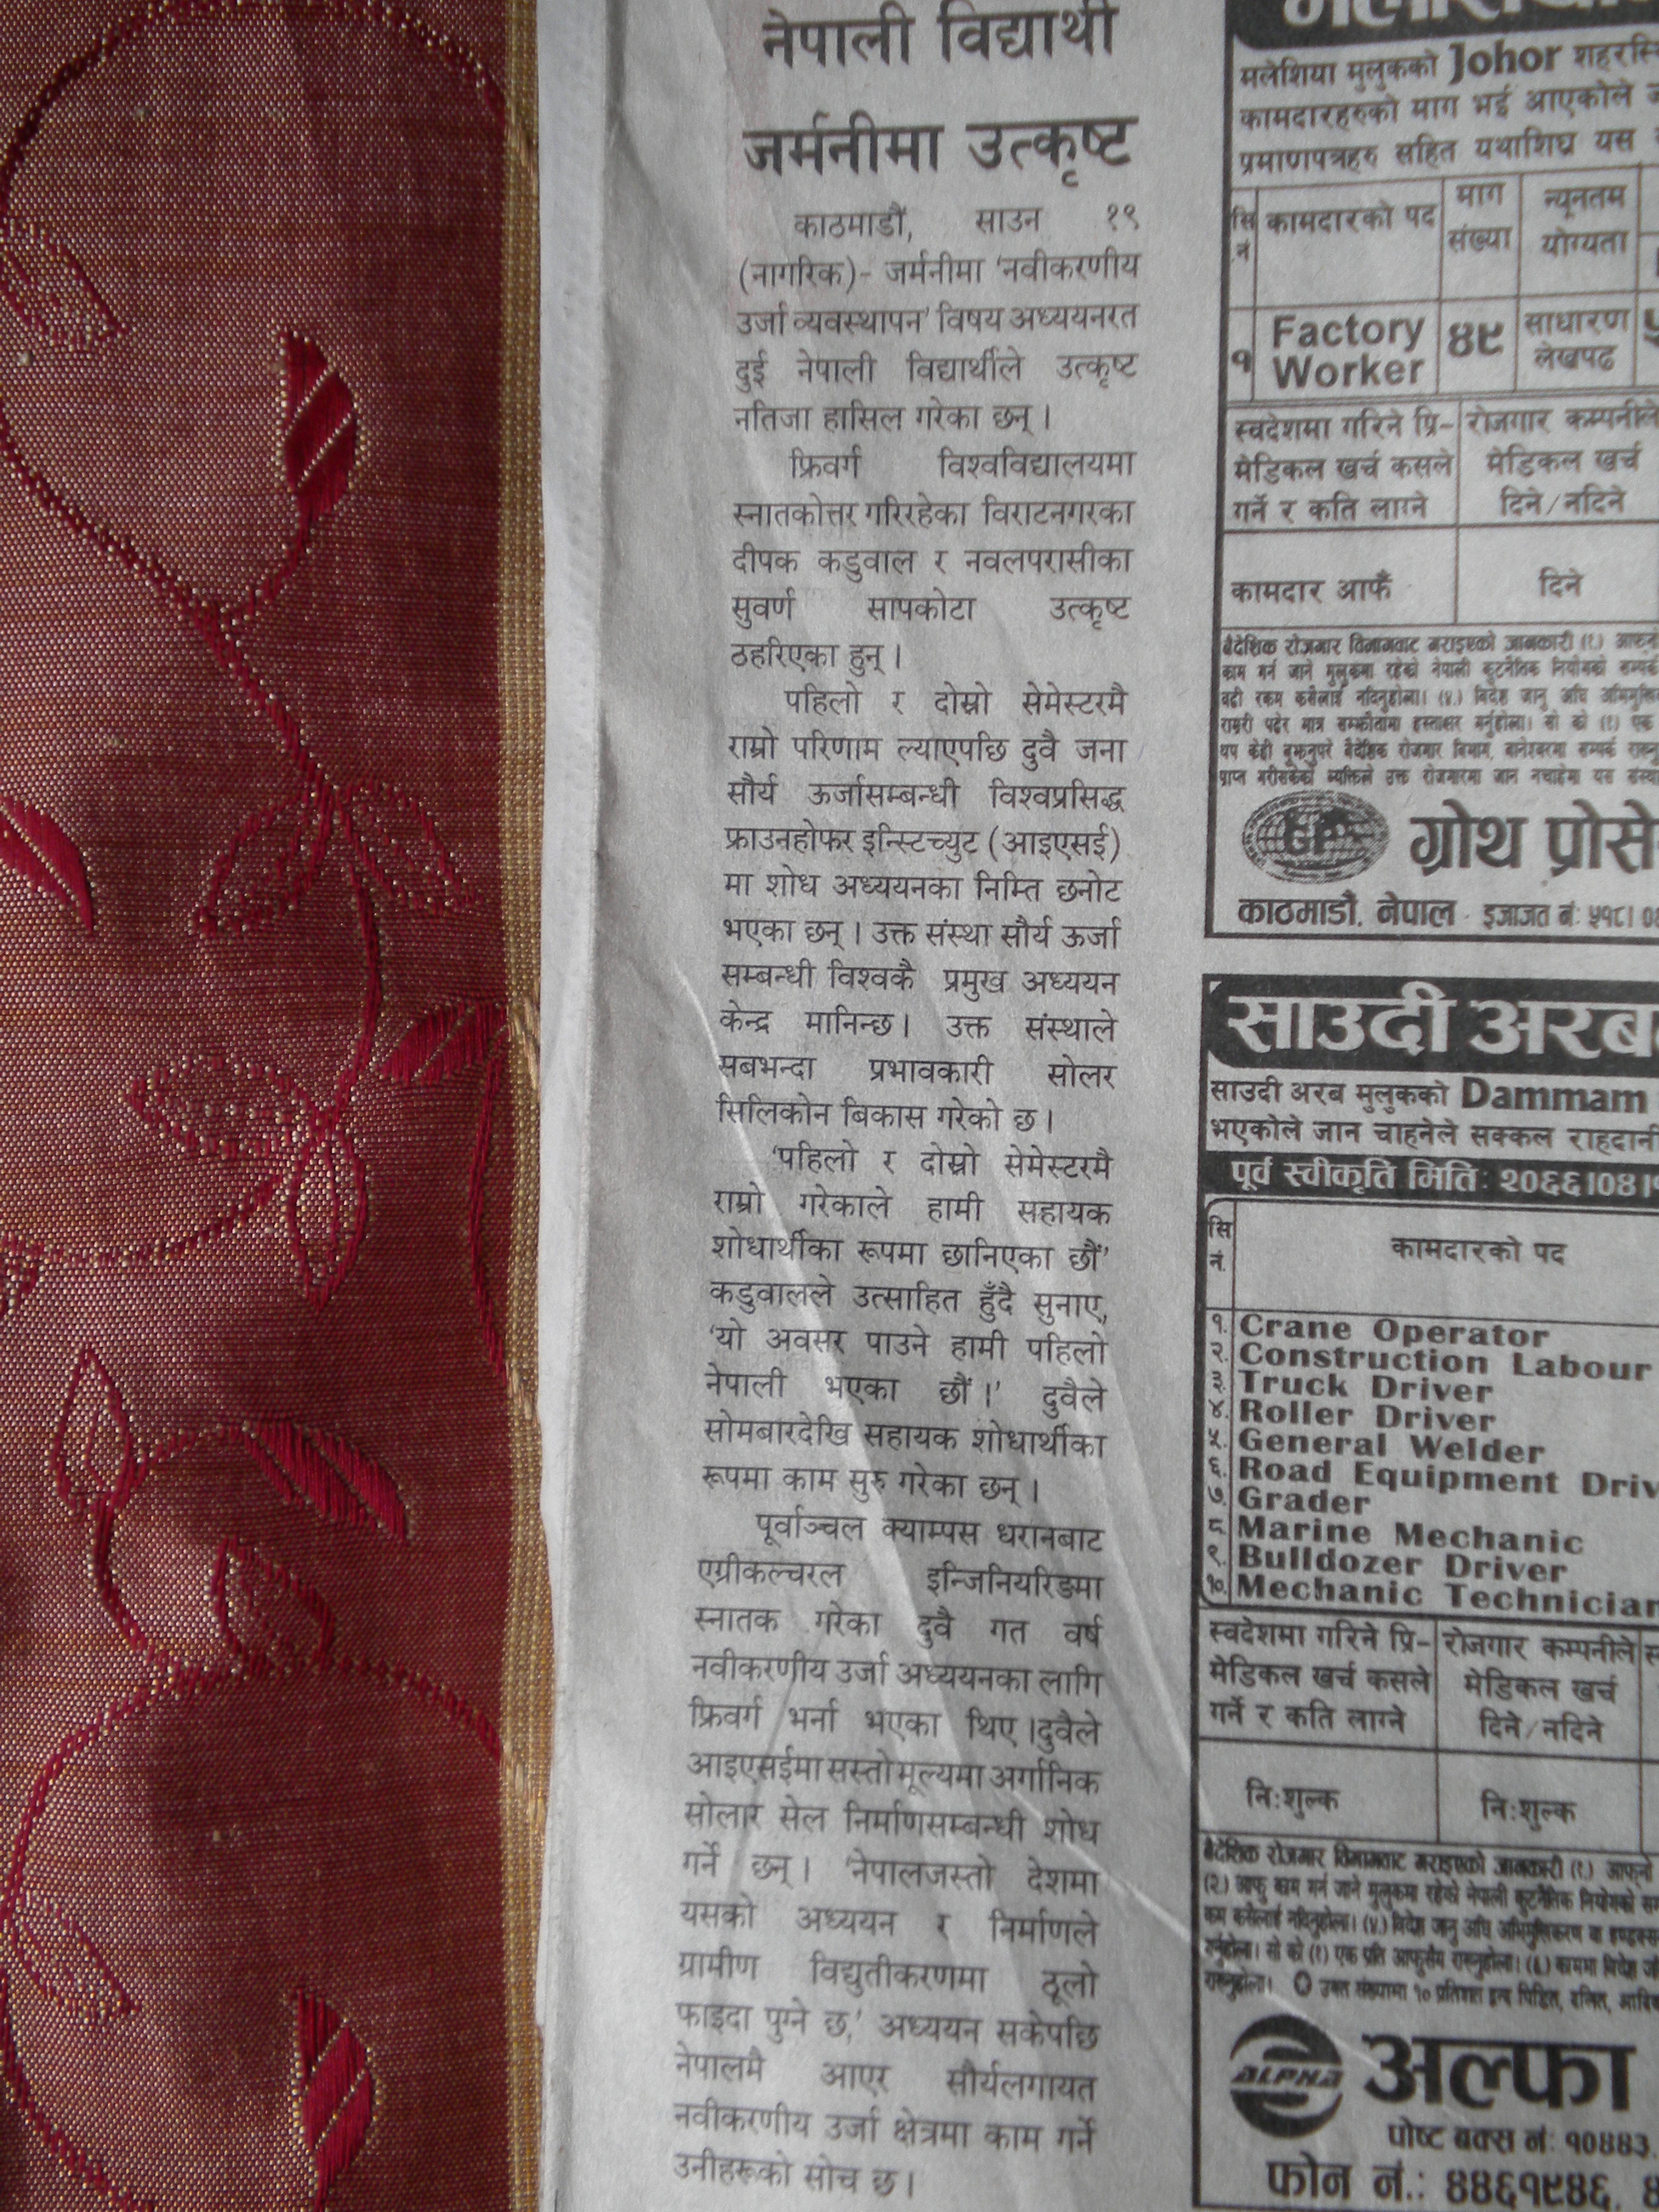 नेपाली विद्यार्थी
जर्मनीमा उत्कृष्ट
काठमाडौं, साउन १९
(नागरिक)- जर्मनीमा 'नवीकरणीय
उर्जा व्यवस्थापन' विषय अध्ययनरत
दुई नेपाली विद्यार्थीले उत्कृष्ट
नतिजा हासिल गरेका छन् ।
फ्रिवर्ग विश्वविद्यालयमा
स्नातकोत्तर गरिरहेका विराटनगरका
दीपक कडुवाल र नवलपरासीका
सुवर्ण सापकोटा उत्कृष्ट
ठहरिएका हुन् ।
पहिलो र दोस्रो सेमेस्टरमै
राम्रो परिणाम ल्याएपछि दुवै जना
सौर्य ऊर्जासम्बन्धी विश्वप्रसिद्ध
फ्राउनहोफर इन्स्टिच्युट (आइएसई)
मा शोध अध्ययनका निम्ति छनोट
भएका छन् । उक्त संस्था सौर्य ऊर्जा
सम्बन्धी विश्वकै प्रमुख अध्ययन
केन्द्र मानिन्छ । उक्त संस्थाले
सबभन्दा प्रभावकारी सोलर
सिलिकोन बिकास गरेको छ ।
'पहिलो र दोस्रो सेमेस्टरमै
राम्रो गरेकाले हामी सहायक
शोधार्थीका रूपमा छानिएका छौं'
कडुवालले उत्साहित हुँदै सुनाए,
'यो अवसर पाउने हामी पहिलो
नेपाली भएका छौं ।' दुवैले
सोमबारदेखि सहायक शोधार्थीका
रूपमा काम सुरु गरेका छन् ।
पूर्वाञ्चल क्याम्पस धरानबाट
एग्रीकल्चरल इन्जिनियरिङमा
स्नातक गरेका दुवै गत वर्ष
नवीकरणीय उर्जा अध्ययनका लागि
फ्रिवर्ग भर्ना भएका थिए ।दुवैले
आइएसईमा सस्तो मूल्यमा अर्गानिक
सोलार सेल निर्माणसम्बन्धी शोध
गर्ने छन् । 'नेपालजस्तो देशमा
यसको अध्ययन र निर्माणले
ग्रामीण विद्युतीकरणमा ठूलो
फाइदा पुग्ने छ,' अध्ययन सकेपछि
नेपालमै आएर सौर्यलगायत
नवीकरणीय उर्जा क्षेत्रमा काम गर्ने
उनीहरूको सोच छ ।
मलेशिया मुलुकको Johor
कामदारहरुको माग भई आएकोले
प्रमाणपत्रहरु सहित यथाशिघ्र यस
सि नं कामदारको पद माग संख्या न्यूनतम योग्यता
१ Factory Worker ४९ साधारण लेखपढ
स्वदेशमा गरिने प्रि- रोजगार कम्पनीले
मेडिकल खर्च कसले मेडिकल खर्च
गर्ने र कति लाग्ने दिने/नदिने
कामदार आफैं दिने
वैदेशिक रोजगार विभागबाट गराइएको जानकारी (१)
काम गर्न जाने मुलुकमा रहेको नेपाली कुटनैतिक नियोगको
बढी रकम कसैलाई नदिनुहोला। (४) विदेश जानु अघि
GP
ग्रोथ
काठमाडौं, नेपाल इजाजत नं: ५१८।
साउदी
साउदी अरब मुलुकको Dammam
भएकोले जान चाहनेले सक्कल
पूर्व स्वीकृति मिति: २०६६।०४।
सि नं. कामदारको पद
१. Crane Operator
२. Construction Labour
३. Truck Driver
४. Roller Driver
५. General Welder
६. Road Equipment
७. Grader
८. Marine Mechanic
९. Bulldozer Driver
१०. Mechanic Technician
स्वदेशमा गरिने प्रि- रोजगार कम्पनीले
मेडिकल खर्च कसले मेडिकल खर्च
गर्ने र कति लाग्ने दिने/नदिने
नि:शुल्क नि:शुल्क
वैदेशिक रोजगार विभागबाट गराइएको जानकारी (१) आफ्नो
(२) आफु काम गर्न जाने मुलुकमा रहेको नेपाली कुटनैतिक नियोगको
ALPHA
अल्फा
पोष्ट बक्स नं: १०४४३,
फोन नं.: ४४६१९४६,